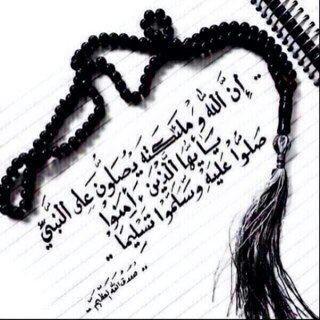 إِنَّ اللَّهَ وَ مَلَٰئِكَتَهُ يُصَلُّونَ عَلَى النَّبِيِّ
يَا أَيُّهَا الَّذِينَ ءَامَنُوا
صَلُّوا عَلَيْهِ وَسَلِّمُوا تَسْلِيمًا
صدق الله العظيم